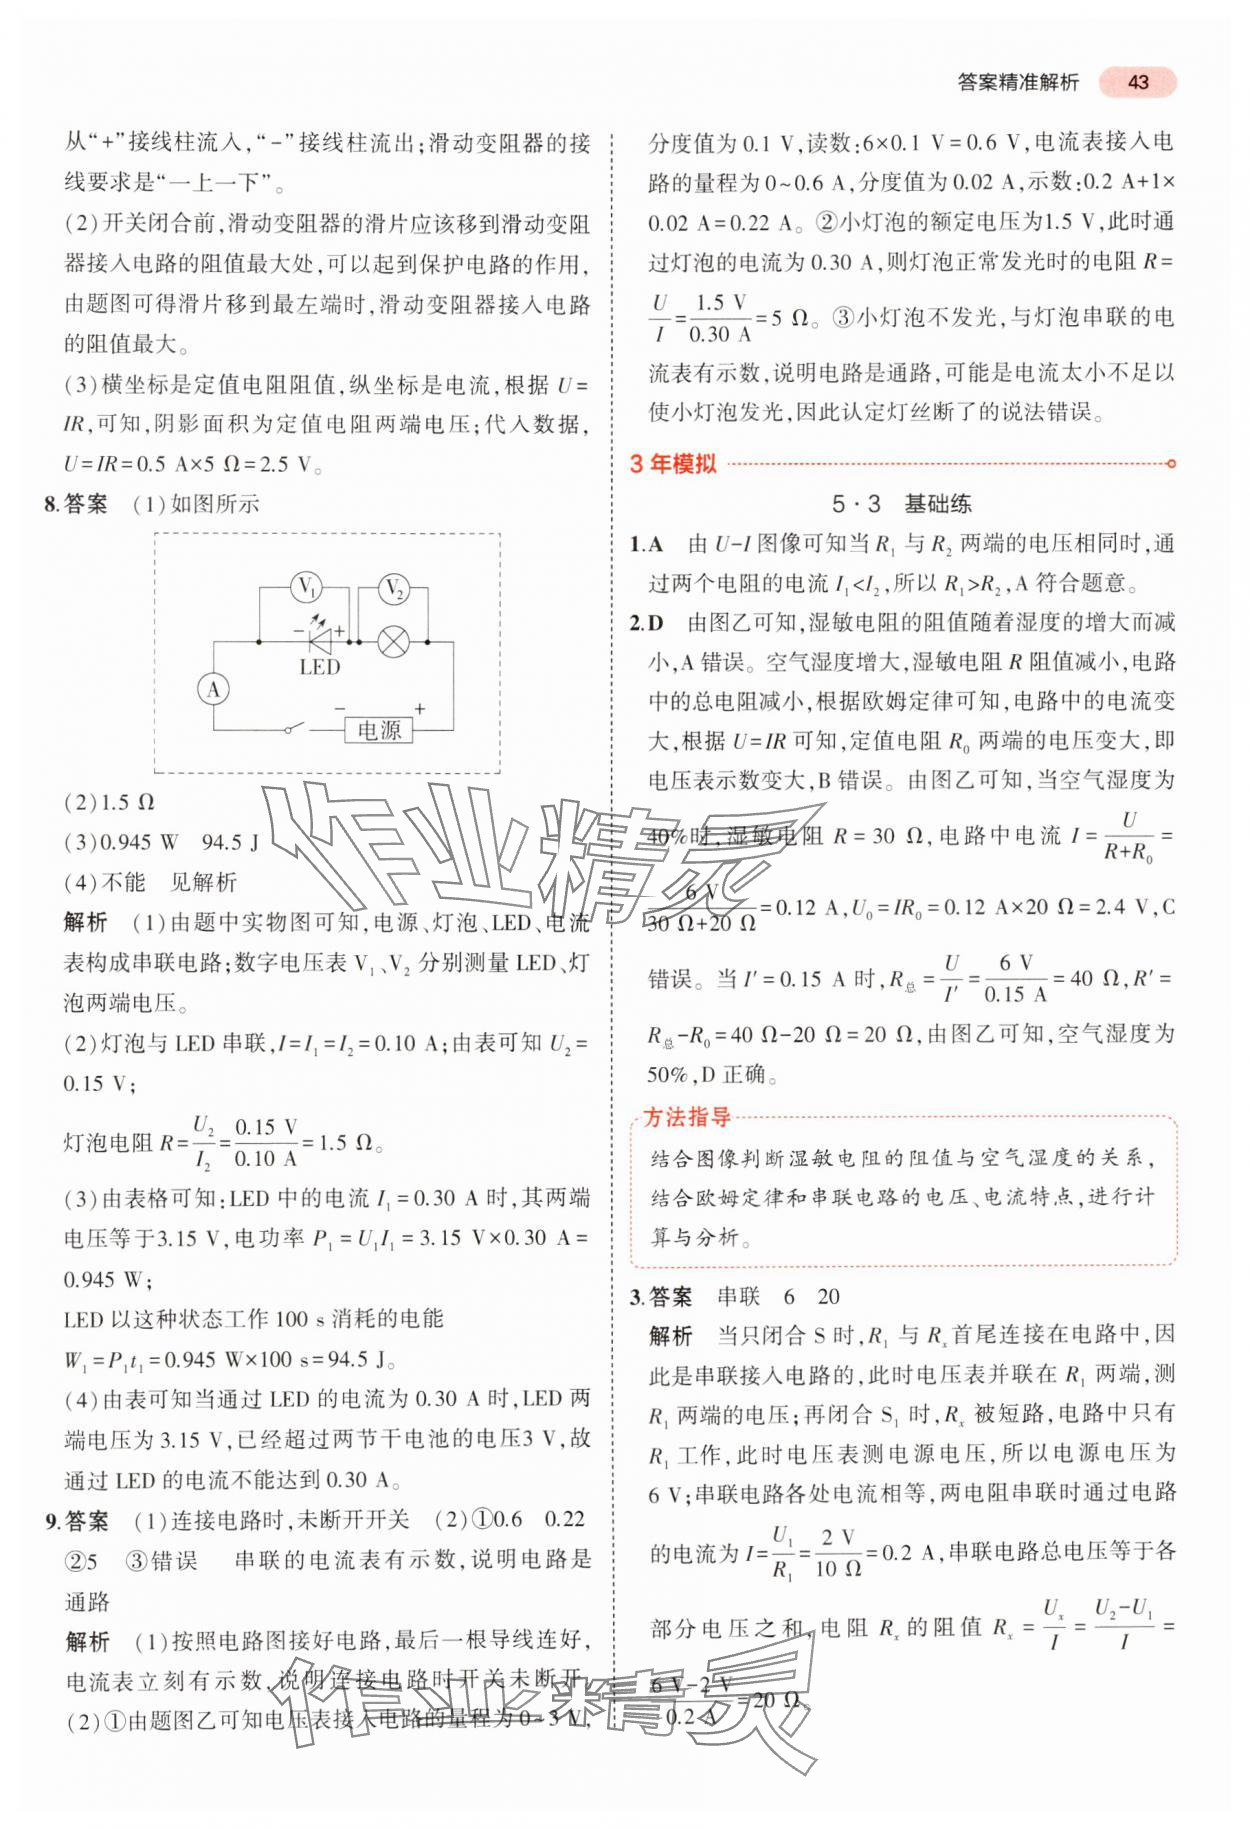 答案精准解析 43
从“+”接线柱流入,“-”接线柱流出;滑动变阻器的接
线要求是“一上一下”。
(2)开关闭合前,滑动变阻器的滑片应该移到滑动变阻
器接入电路的阻值最大处,可以起到保护电路的作用,
由题图可得滑片移到最左端时,滑动变阻器接入电路
的阻值最大。
(3)横坐标是定值电阻阻值,纵坐标是电流,根据 U=
IR,可知,阴影面积为定值电阻两端电压;代入数据,
U=IR=0.5 A×5 Ω=2.5 V。
8.答案 (1)如图所示
V₁ V₂
- +
LED
A
- +
电源
(2)1.5 Ω
(3)0.945 W 94.5 J
(4)不能 见解析
解析 (1)由题中实物图可知,电源、灯泡、LED、电流
表构成串联电路;数字电压表 V₁、V₂ 分别测量 LED、灯
泡两端电压。
(2)灯泡与 LED 串联,I=I₁=I₂=0.10 A;由表可知 U₂=
0.15 V;
灯泡电阻 R=U₂/I₂=0.15 V/0.10 A=1.5 Ω。
(3)由表格可知:LED 中的电流 I₁=0.30 A 时,其两端
电压等于3.15 V,电功率 P₁=U₁I₁=3.15 V×0.30 A=
0.945 W;
LED 以这种状态工作 100 s 消耗的电能
W₁=P₁t₁=0.945 W×100 s=94.5 J。
(4)由表可知当通过 LED 的电流为 0.30 A 时,LED 两
端电压为 3.15 V,已经超过两节干电池的电压3 V,故
通过 LED 的电流不能达到 0.30 A。
9.答案 (1)连接电路时,未断开开关 (2)①0.6 0.22
②5 ③错误 串联的电流表有示数,说明电路是
通路
解析 (1)按照电路图接好电路,最后一根导线连好,
电流表立刻有示数,说明连接电路时开关未断开。
(2)①由题图乙可知电压表接入电路的量程为 0~3 V,
分度值为 0.1 V,读数:6×0.1 V=0.6 V,电流表接入电
路的量程为 0~0.6 A,分度值为 0.02 A,示数:0.2 A+1×
0.02 A=0.22 A。②小灯泡的额定电压为1.5 V,此时通
过灯泡的电流为 0.30 A,则灯泡正常发光时的电阻 R=
U/I=1.5 V/0.30 A=5 Ω。③小灯泡不发光,与灯泡串联的电
流表有示数,说明电路是通路,可能是电流太小不足以
使小灯泡发光,因此认定灯丝断了的说法错误。
3 年模拟
5·3 基础练
1.A 由 U-I 图像可知当 R₁ 与 R₂ 两端的电压相同时,通
过两个电阻的电流 I₁<I₂,所以 R₁>R₂,A 符合题意。
2.D 由图乙可知,湿敏电阻的阻值随着湿度的增大而减
小,A 错误。空气湿度增大,湿敏电阻 R 阻值减小,电路
中的总电阻减小,根据欧姆定律可知,电路中的电流变
大,根据 U=IR 可知,定值电阻 R₀ 两端的电压变大,即
电压表示数变大,B 错误。由图乙可知,当空气湿度为
40%时,湿敏电阻 R=30 Ω,电路中电流 I=U/(R+R₀)=
6 V/(30 Ω+20 Ω)=0.12 A,U₀=IR₀=0.12 A×20 Ω=2.4 V,C
错误。当 I′=0.15 A 时,R总=U/I′=6 V/0.15 A=40 Ω,R′=
R总-R₀=40 Ω-20 Ω=20 Ω,由图乙可知,空气湿度为
50%,D 正确。
方法指导
结合图像判断湿敏电阻的阻值与空气湿度的关系,
结合欧姆定律和串联电路的电压、电流特点,进行计
算与分析。
3.答案 串联 6 20
解析 当只闭合 S 时,R₁ 与 Rₓ首尾连接在电路中,因
此是串联接入电路的,此时电压表并联在 R₁ 两端,测
R₁ 两端的电压;再闭合 S₁ 时,Rₓ 被短路,电路中只有
R₁ 工作,此时电压表测电源电压,所以电源电压为
6 V;串联电路各处电流相等,两电阻串联时通过电路
的电流为 I=U₁/R₁=2 V/10 Ω=0.2 A,串联电路总电压等于各
部分电压之和,电阻 Rₓ的阻值 Rₓ=Uₓ/I=(U₂-U₁)/I=
(6 V-2 V)/0.2 A=20 Ω。
作业精灵
作业精灵